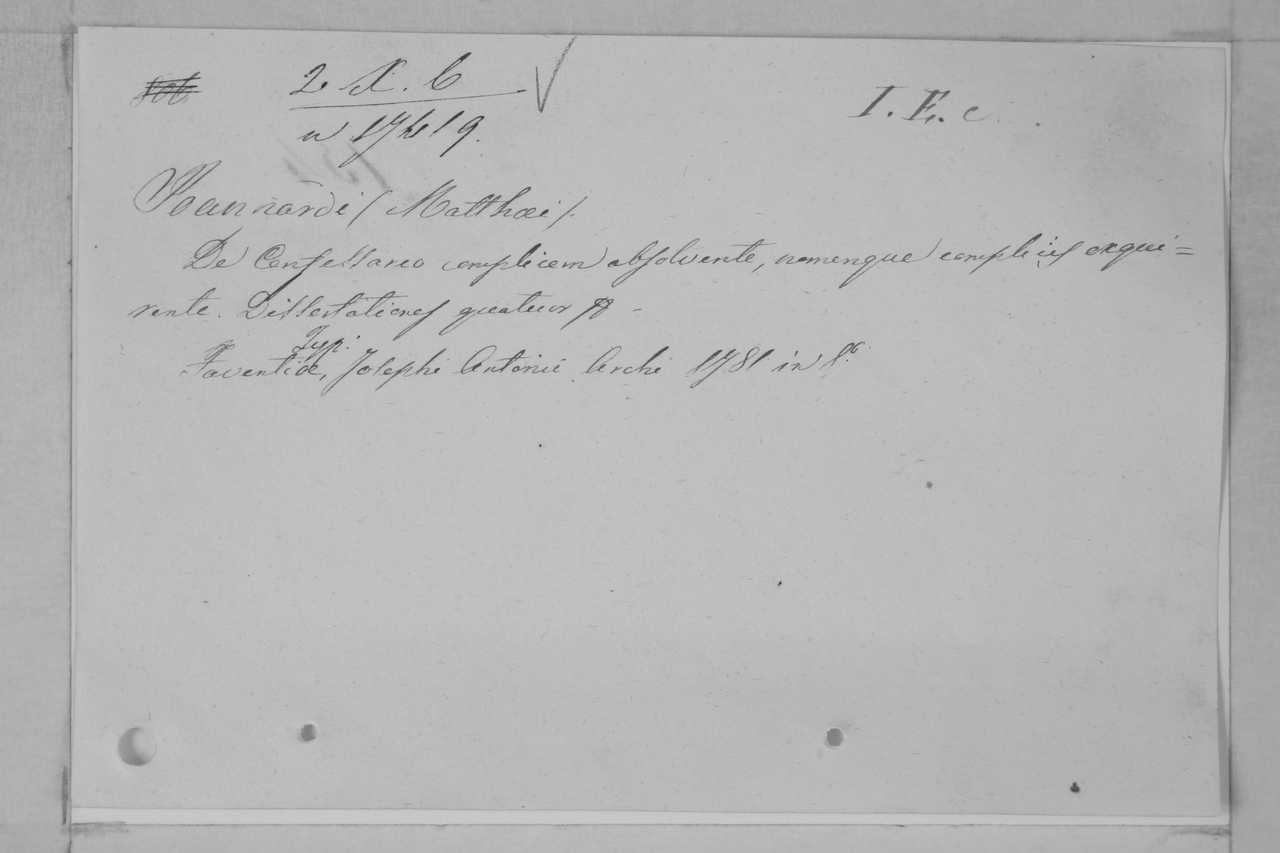 2. X. 6
I. E. c.
Joannardi (Matthæi).
De Confessareo complicem absolvente, nomenque complicis exqui=
rente. Dissertationes quatuor
Typ:
Faventiæ, Josephi Antonii Archi 1781 in 8º.